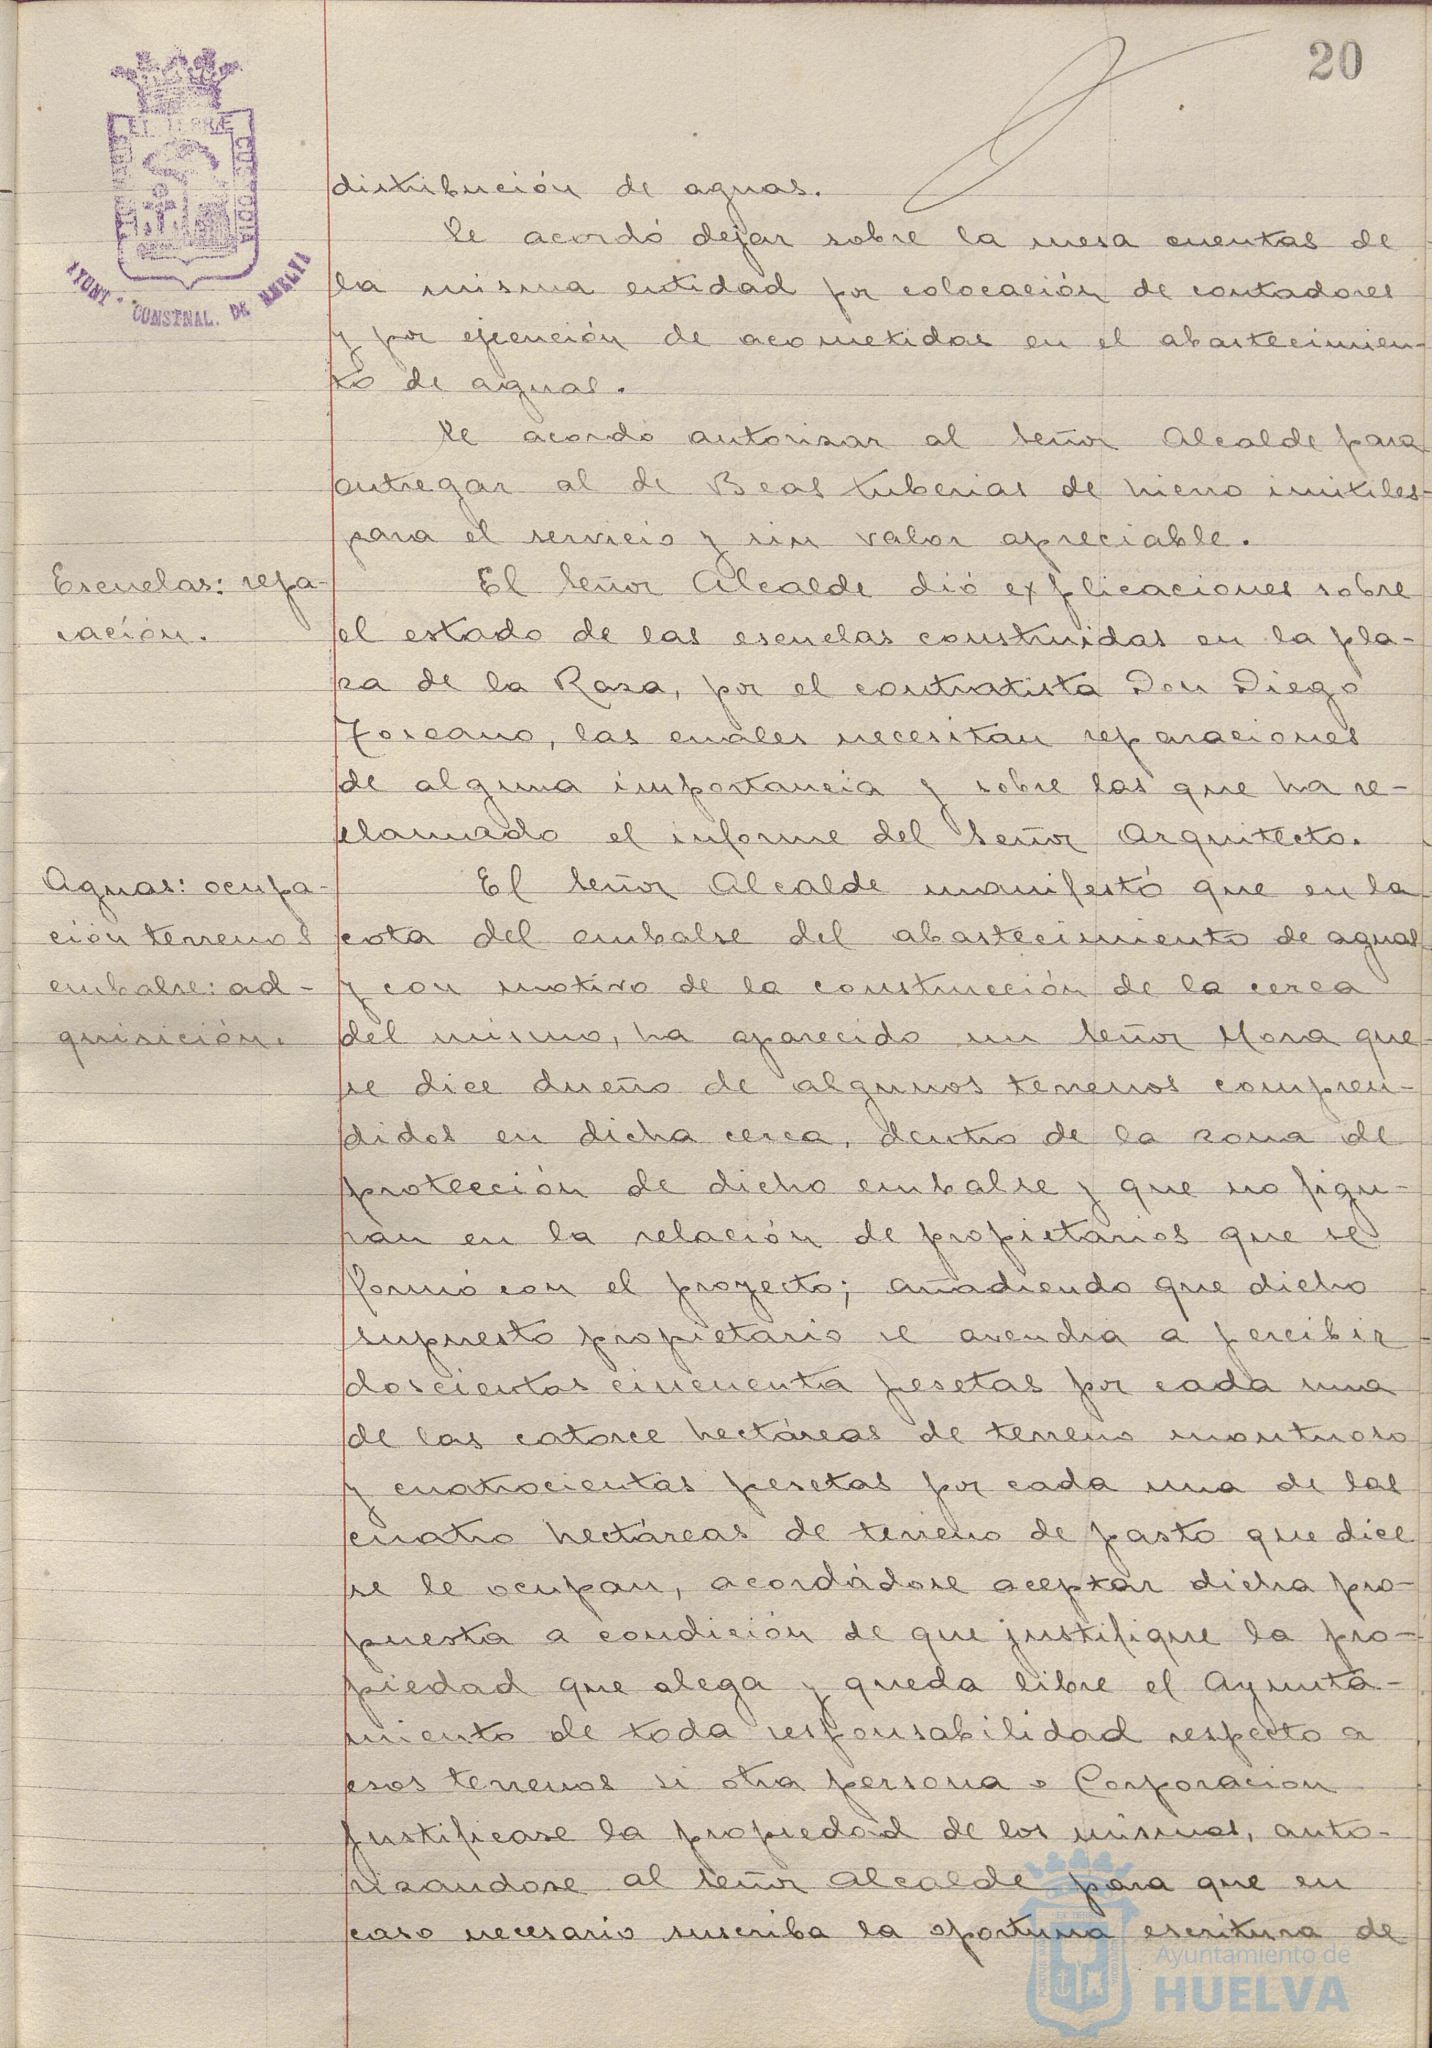 20
ET TERRÆ
CUSTODIA
AYUNT. CONSTNAL. DE HUELVA
distribución de aguas.
Se acordó dejar sobre la mesa cuentas de
la misma entidad por colocación de contadores
y por ejecución de acometidas en el abastecimien-
to de aguas.
Se acordó autorizar al Señor Alcalde para
entregar al de Beas tuberias de hierro inútiles
para el servicio y sin valor apreciable.
Escuelas: repa-
ración.
El Señor Alcalde dió explicaciones sobre
el estado de las escuelas construidas en la pla-
za de la Raza, por el contratista Don Diego
Toscano, las cuales necesitan reparaciones
de alguna importancia y sobre las que ha re-
clamado el informe del Señor Arquitecto.
Aguas: ocupa-
ción terrenos
embalse: ad-
quisición.
El Señor Alcalde manifestó que en la
cota del embalse del abastecimiento de aguas
y con motivo de la construcción de la cerca
del mismo, ha aparecido un Señor Mora que
se dice dueño de algunos terrenos compren-
didos en dicha cerca, dentro de la zona de
protección de dicho embalse y que no figu-
ran en la relación de propietarios que se
formó con el proyecto; añadiendo que dicho
supuesto propietario se avendra a percibir
doscientas cincuenta pesetas por cada una
de las catorce hectáreas de terreno montuoso
y cuatrocientas pesetas por cada una de las
cuatro hectáreas de terreno de pasto que dice
se le ocupan, acordádose aceptar dicha pro-
puesta a condición de que justifique la pro-
piedad que alega y queda libre el Ayunta-
miento de toda responsabilidad respecto a
esos terrenos si otra persona o Corporacion
justificase la propiedad de los mismos, auto-
rizandose al Señor Alcalde para que en
caso necesario suscriba la oportuna escritura de
Ayuntamiento de
HUELVA